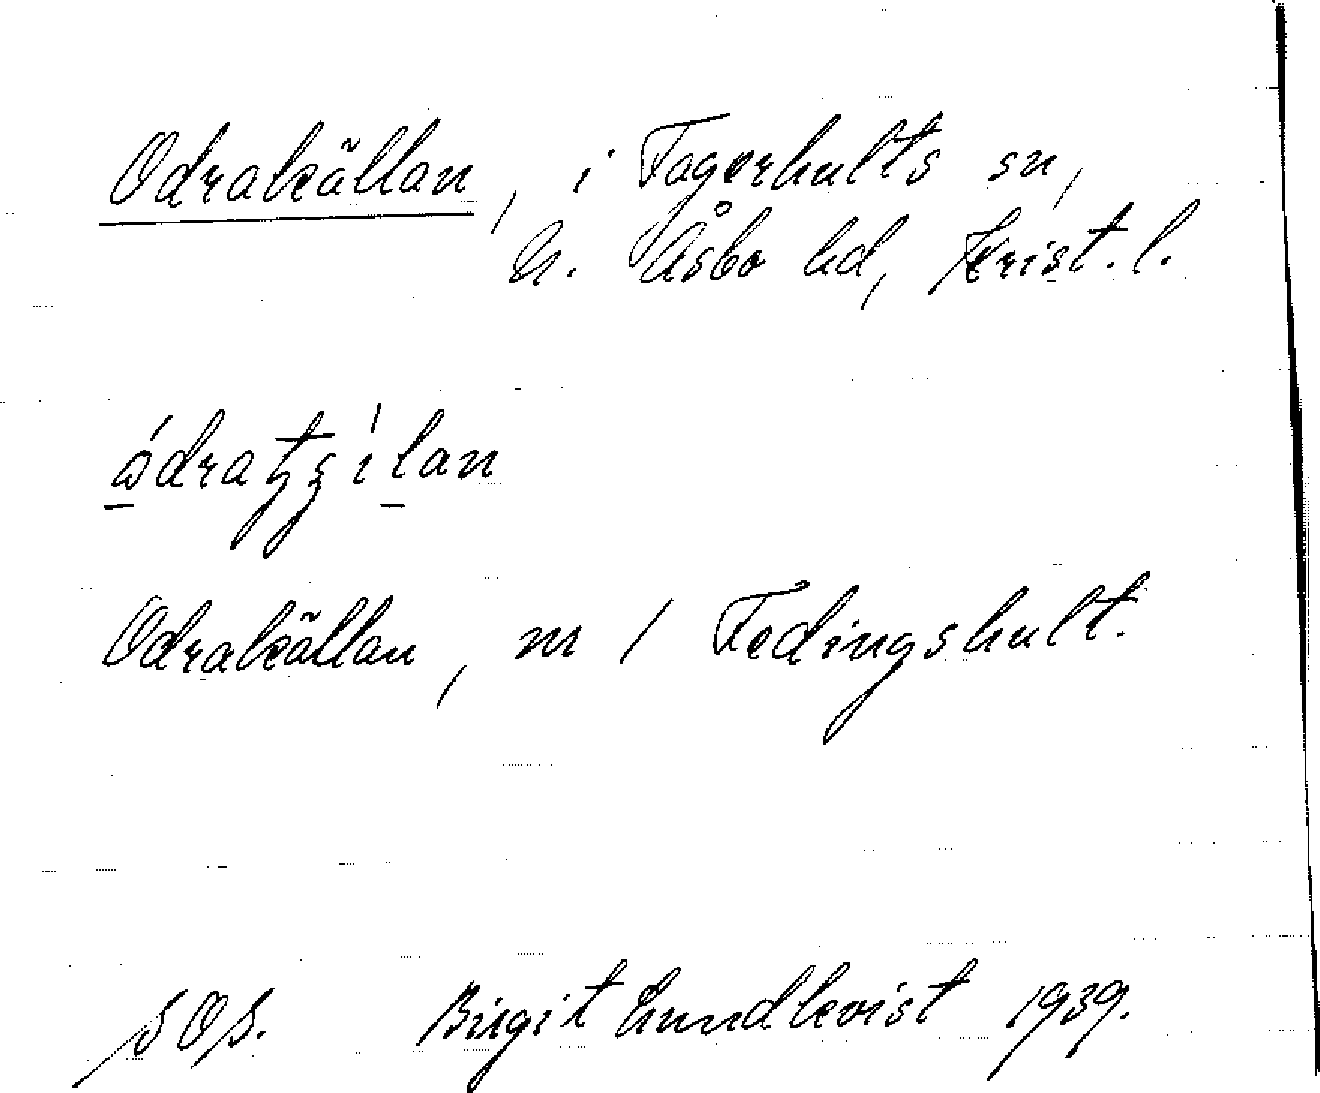 Odrakällan, i Fagerhults sn,
N. Åsbo hd, Krist. l.
Odrakällan, m / Fedingshult.
SOS. Birgit Lundkvist 1939.